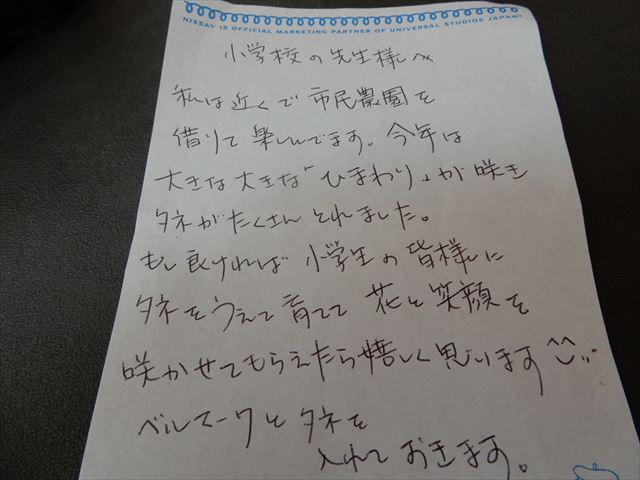 NISSAY IS OFFICIAL MARKETING PARTNER OF UNIVERSAL STUDIOS JAPAN
小学校の先生様へ
私は近くで市民農園を
借りて楽しんでます。今年は
大きな大きな「ひまわり」が咲き
タネがたくさんとれました。
もし良ければ小学生の皆様に
タネをうえて育てて花と笑顔を
咲かせてもらえたら嬉しく思います^^
ベルマークとタネを
入れておきます。